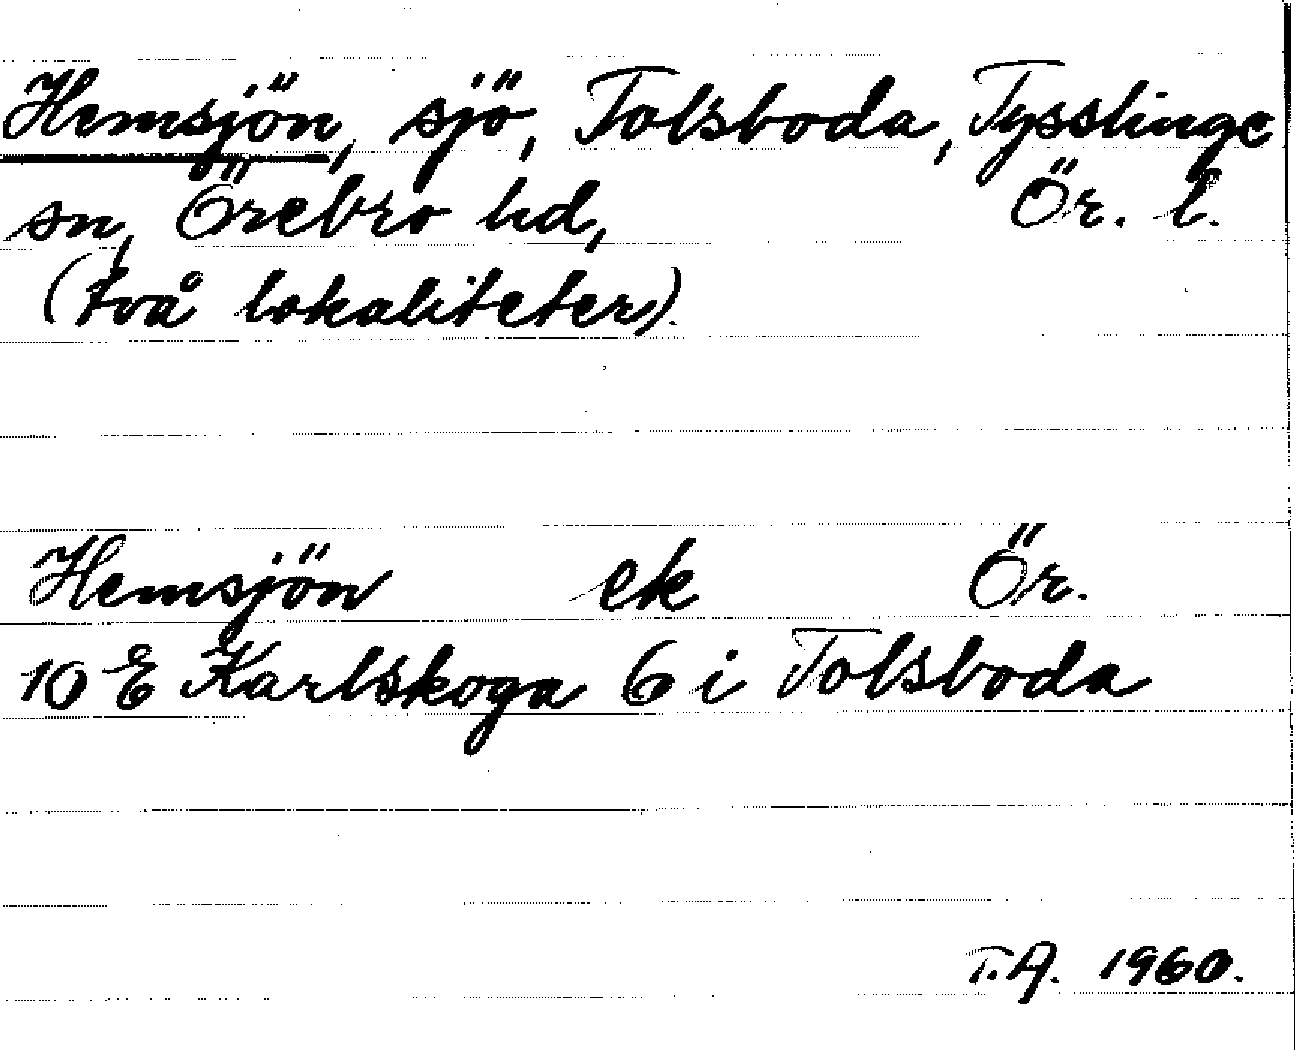 Hemsjön, sjö, Tolsboda, Tysslinge
sn, Örebro hd, Ör. l.
(två lokaliteter).
Hemsjön ek Ör.
10 E Karlskoga 6 i Tolsboda
T.A. 1960.